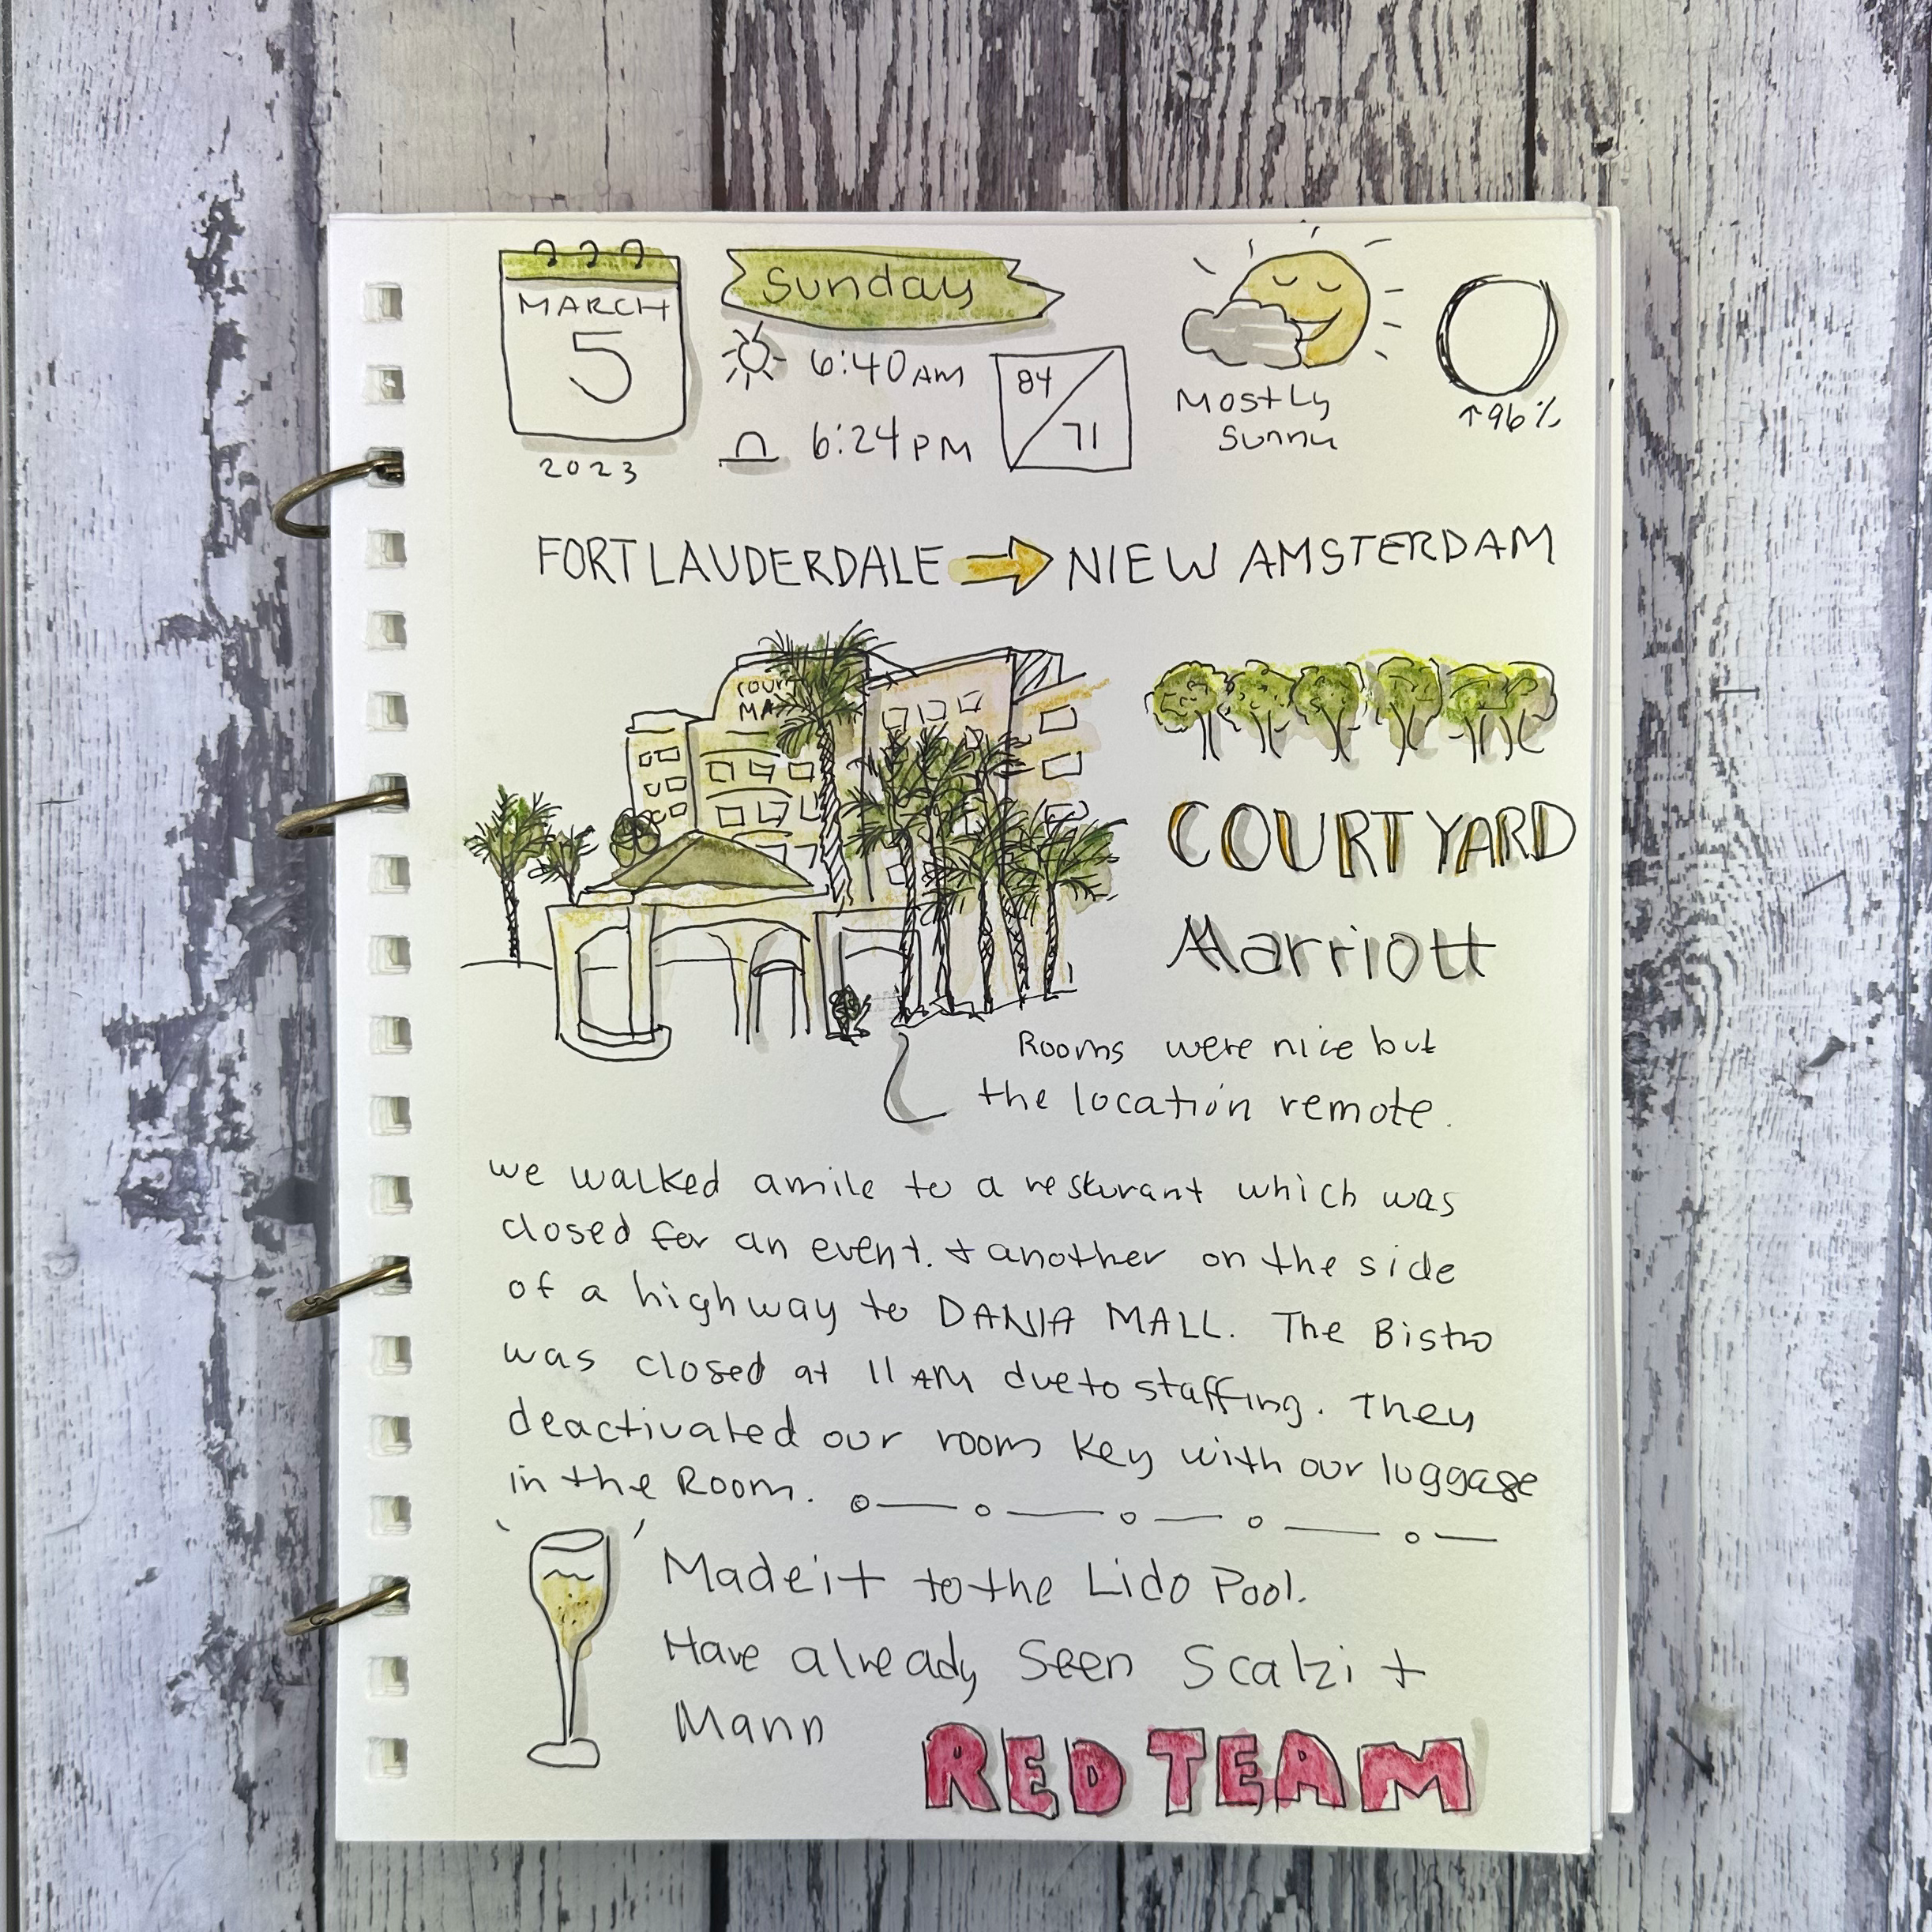 Sunday
MARCH
5
2023
6:40AM
6:24PM
84
71
Mostly
Sunny
↑96%
FORT LAUDERDALE → NIEW AMSTERDAM
COUR
MA
COURTYARD
Marriott
Rooms were nice but
the location remote.
we walked a mile to a resturant which was
closed for an event. + another on the side
of a highway to DANIA MALL. The Bistro
was closed at 11AM due to staffing. They
deactivated our room key with our luggage
in the Room.
Made it to the Lido Pool.
Have already seen Scalzi +
Mann
RED TEAM